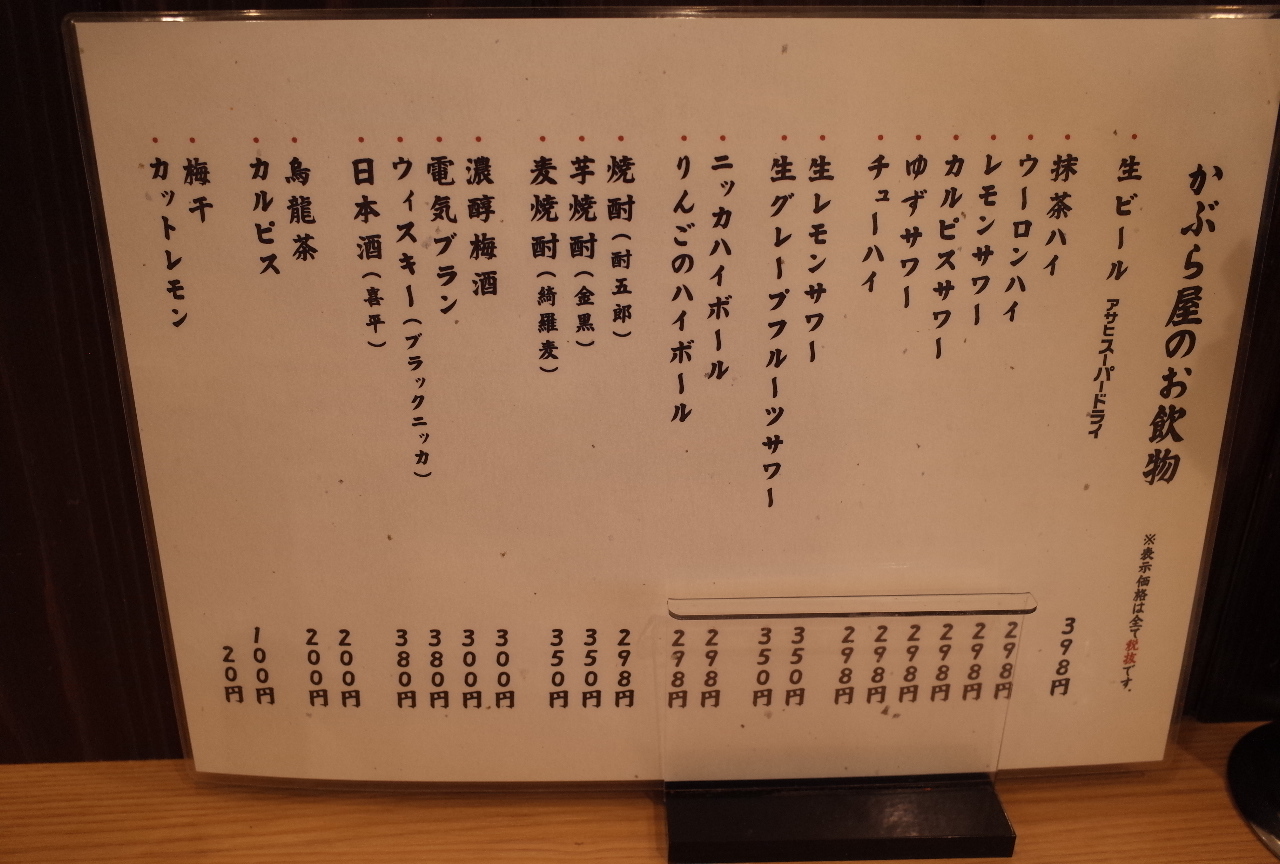 かぶら屋のお飲物 ※表示価格は全て税抜です。
・生ビール アサヒスーパードライ 398円
・抹茶ハイ 298円
・ウーロンハイ 298円
・レモンサワー 298円
・カルピスサワー 298円
・ゆずサワー 298円
・チューハイ 298円
・生レモンサワー 350円
・生グレープフルーツサワー 350円
・ニッカハイボール 298円
・りんごのハイボール 298円
・焼酎（酎五郎） 298円
・芋焼酎（金黒） 350円
・麦焼酎（綺羅麦） 350円
・濃醇梅酒 300円
・電気ブラン 300円
・ウィスキー（ブラックニッカ） 380円
・日本酒（喜平） 380円
・烏龍茶 200円
・カルピス 200円
・梅干 100円
・カットレモン 20円